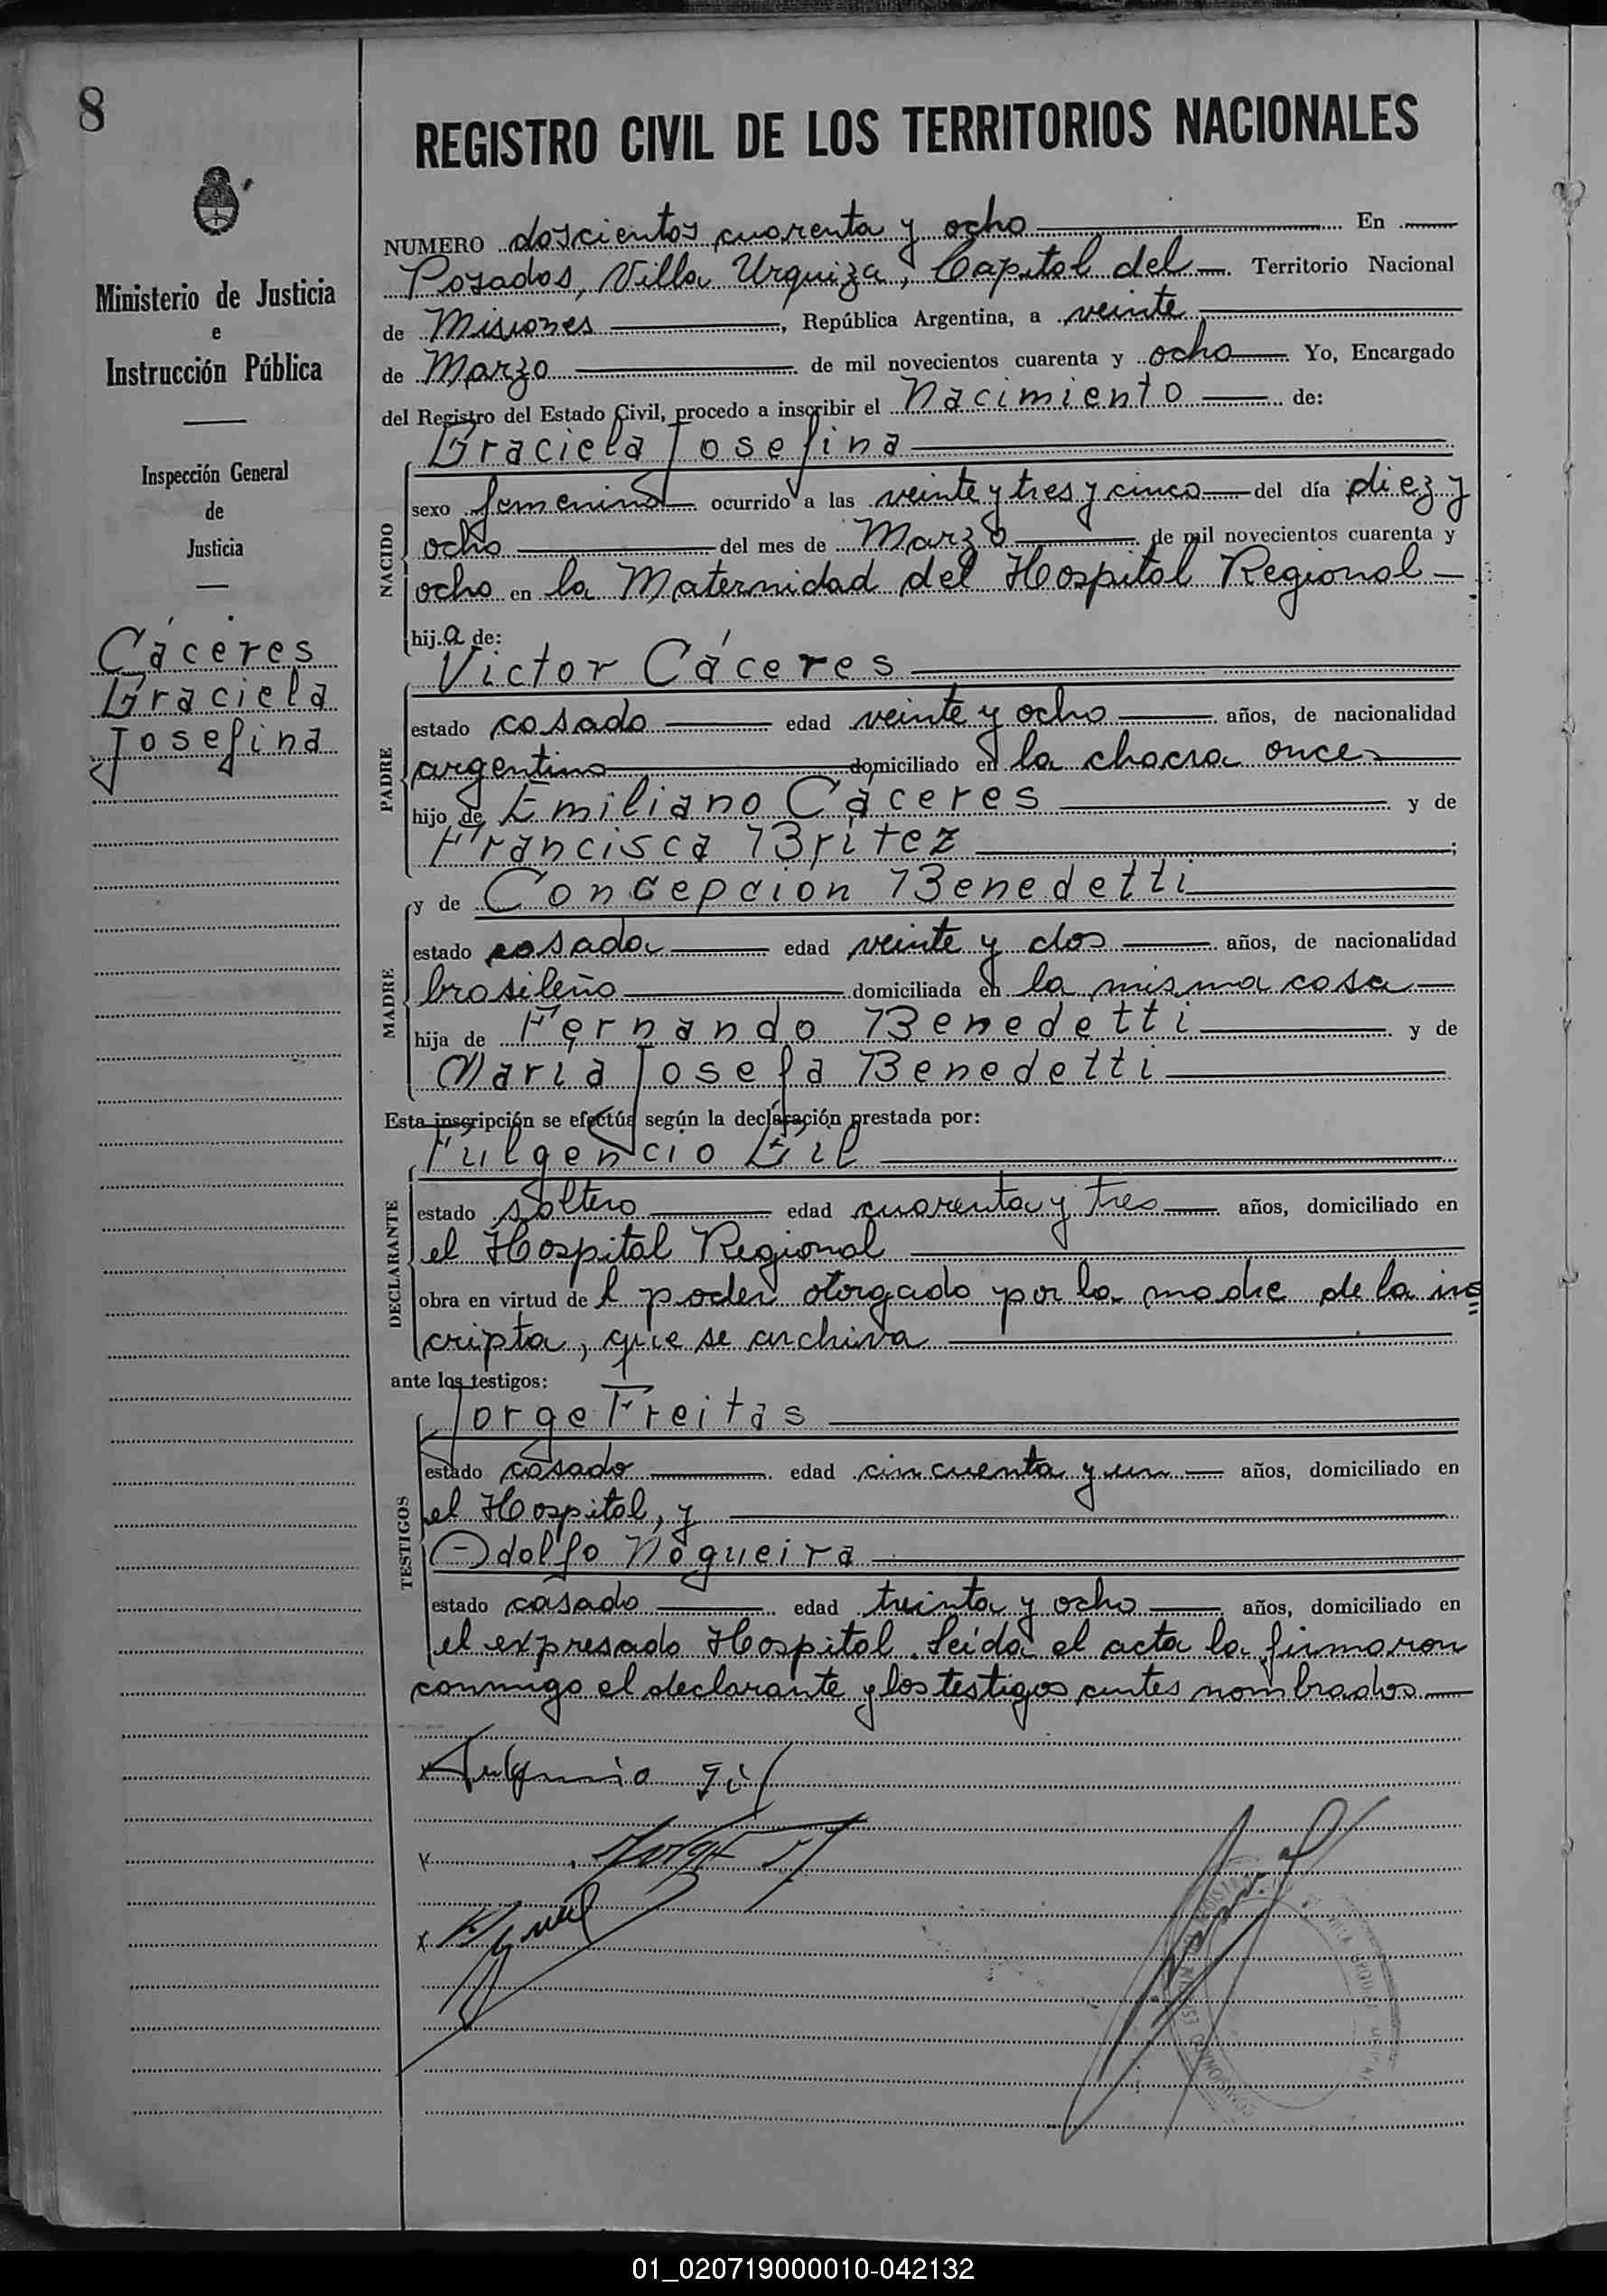 8
REGISTRO CIVIL DE LOS TERRITORIOS NACIONALES
Ministerio de Justicia
e
Instrucción Pública
Inspección General
de
Justicia
Cáceres
Graciela
Josefina
NUMERO doscientos cuarenta y ocho En
Posadas, Villa Urquiza, Capital del Territorio Nacional
de Misiones, República Argentina, a veinte
de Marzo de mil novecientos cuarenta y ocho Yo, Encargado
del Registro del Estado Civil, procedo a inscribir el Nacimiento de:
Graciela Josefina
NACIDO
sexo femenino ocurrido a las veinte y tres y cinco del día diez y
ocho del mes de Marzo de mil novecientos cuarenta y
ocho en la Maternidad del Hospital Regional
hija de:
Victor Cáceres
PADRE
estado casado edad veinte y ocho años, de nacionalidad
argentino domiciliado en la chacra once
hijo de Emiliano Cáceres y de
Francisca Britez;
y de Concepción Benedetti
MADRE
estado casada edad veinte y dos años, de nacionalidad
brasileña domiciliada en la misma casa
hija de Fernando Benedetti y de
Maria Josefa Benedetti
Esta inscripción se efectúa según la declaración prestada por:
Fulgencio Gil
DECLARANTE
estado soltero edad cuarenta y tres años, domiciliado en
el Hospital Regional
obra en virtud del poder otorgado por la madre de la ins=
cripta, que se archiva
ante los testigos:
Jorge Freitas
TESTIGOS
estado casado edad cincuenta y un años, domiciliado en
el Hospital, y
Adolfo Nogueira
estado casado edad treinta y ocho años, domiciliado en
el expresado Hospital. Leída el acta la firmaron
conmigo el declarante y los testigos antes nombrados
x Fulgencio Gil
x Jorge
x
VILLA URQUIZA
01_020719000010-042132